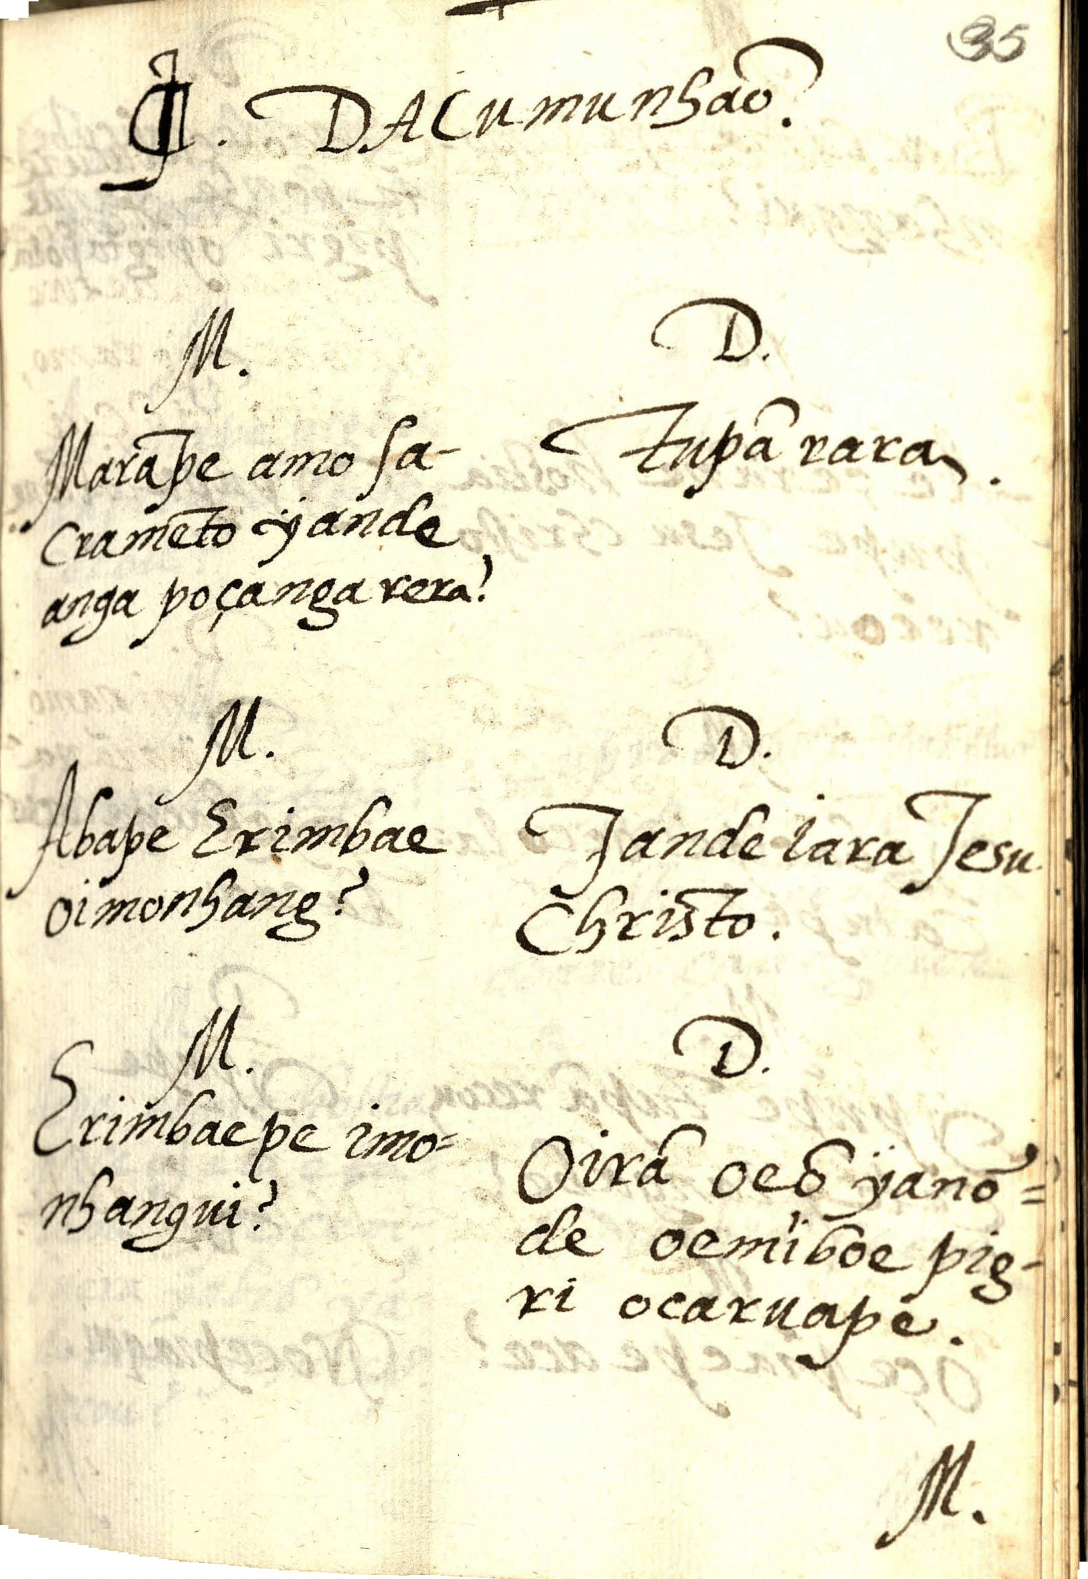 35
¶. DACumunhaõ.
M.
Marãpe amo sa-
cramẽto ÿande
anga poçanga rera?
D.
Tupã rara.
M.
Abape Erimbae
oimonhang?
D.
Jande iara Jesu
Christo.
M.
Erimbaepe imo=
nhangui?
D.
Oirã oeõ ÿanõ=
de oemiboe pig-
ri ocaruape.
M.